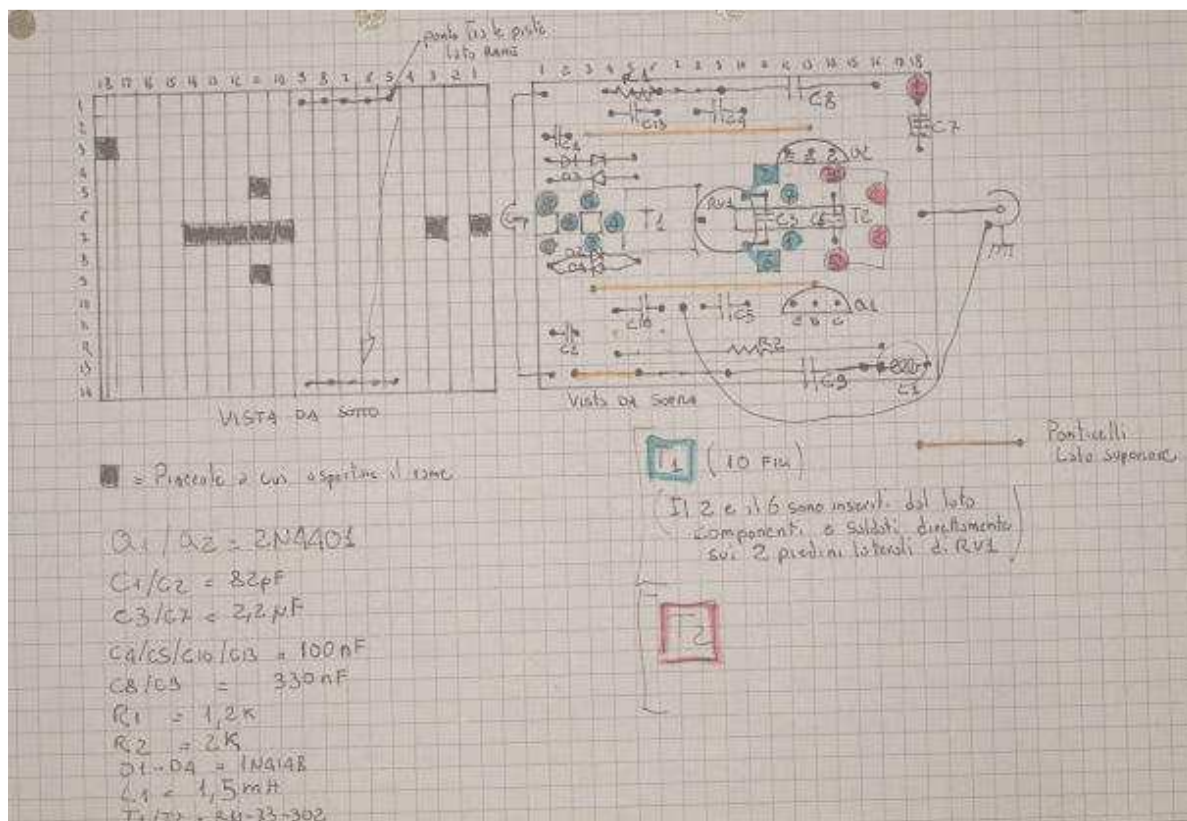 ponte tra le piste
lato RAME
18 17 16 15 14 13 12 11 10 9 8 7 6 5 4 3 2 1
1 2 3 4 5 6 7 8 9 10 11 12 13 14 15 16 17 18
1
2
3
4
5
6
7
8
9
10
11
12
13
14
R1
C8
C13
C4
C7
D1
D3
Q2
T1
RV1
C3
T2
D2
D4
C10
C5
Q1
e B c
C2
R2
C9
L1
VISTA DA SOTTO
Vista DA SOPRA
Ponticelli
Lato superiore
= Piazzole a cui asportare il rame
T1 (10 Fili)
Il 2 e il 6 sono inseriti dal lato
componenti e saldati direttamente
sui 2 piedini laterali di RV1
T2
Q1/Q2 = 2N4401
C1/C2 = 82pF
C3/C7 = 2,2µF
C4/C5/C10/C13 = 100nF
C8/C9 = 330nF
R1 = 1,2K
R2 = 2K
D1--D4 = 1N4148
L1 = 1,5mH